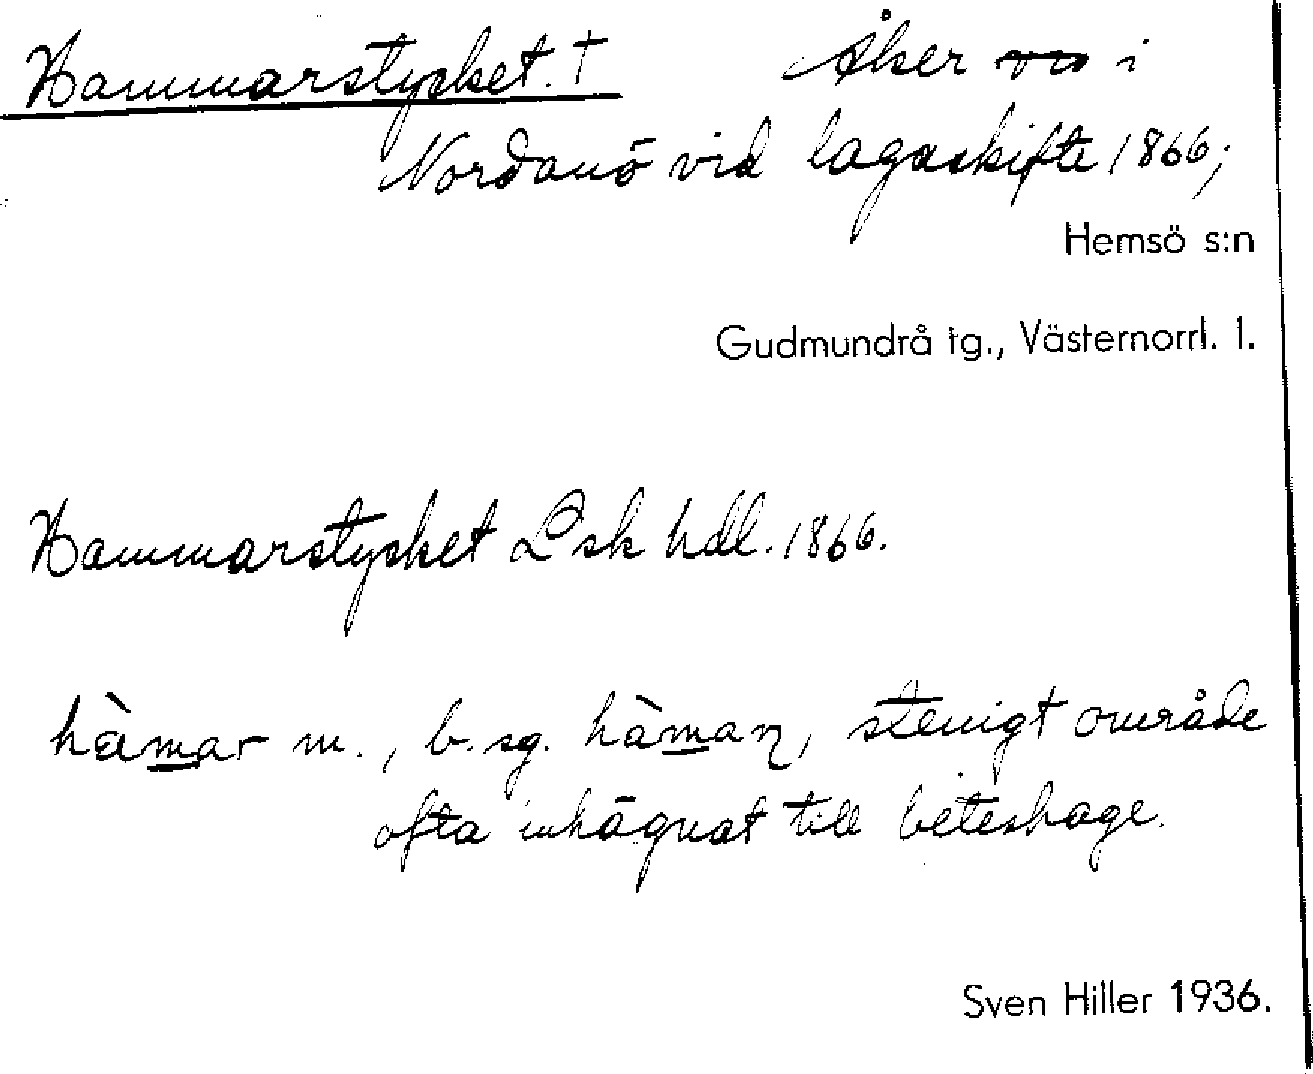 Hammarstycket. † Åker i
Nordanö vid lagaskifte 1866;
Hemsö s:n
Gudmundrå tg., Västernorrl. l.
Hammarstycket L sk hdl. 1866.
hàmar m., b. sg. hàmaɳ, stenigt område
ofta inhägnat till beteshage.
Sven Hiller 1936.